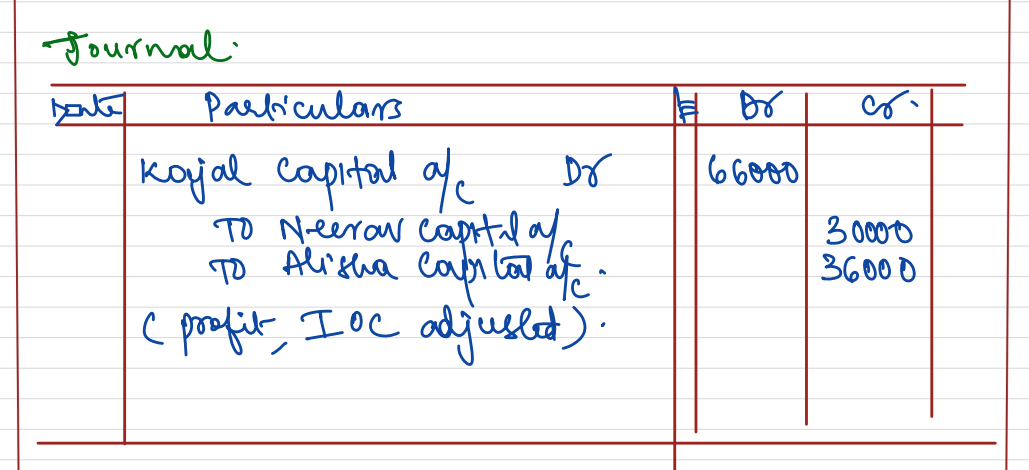 Journal.
Date Particulars LF Dr Cr.
Kajal Capital a/c Dr 66000
To Neerav Capital a/c 30000
To Alisha Capital a/c. 36000
(profit, IOC adjusted).